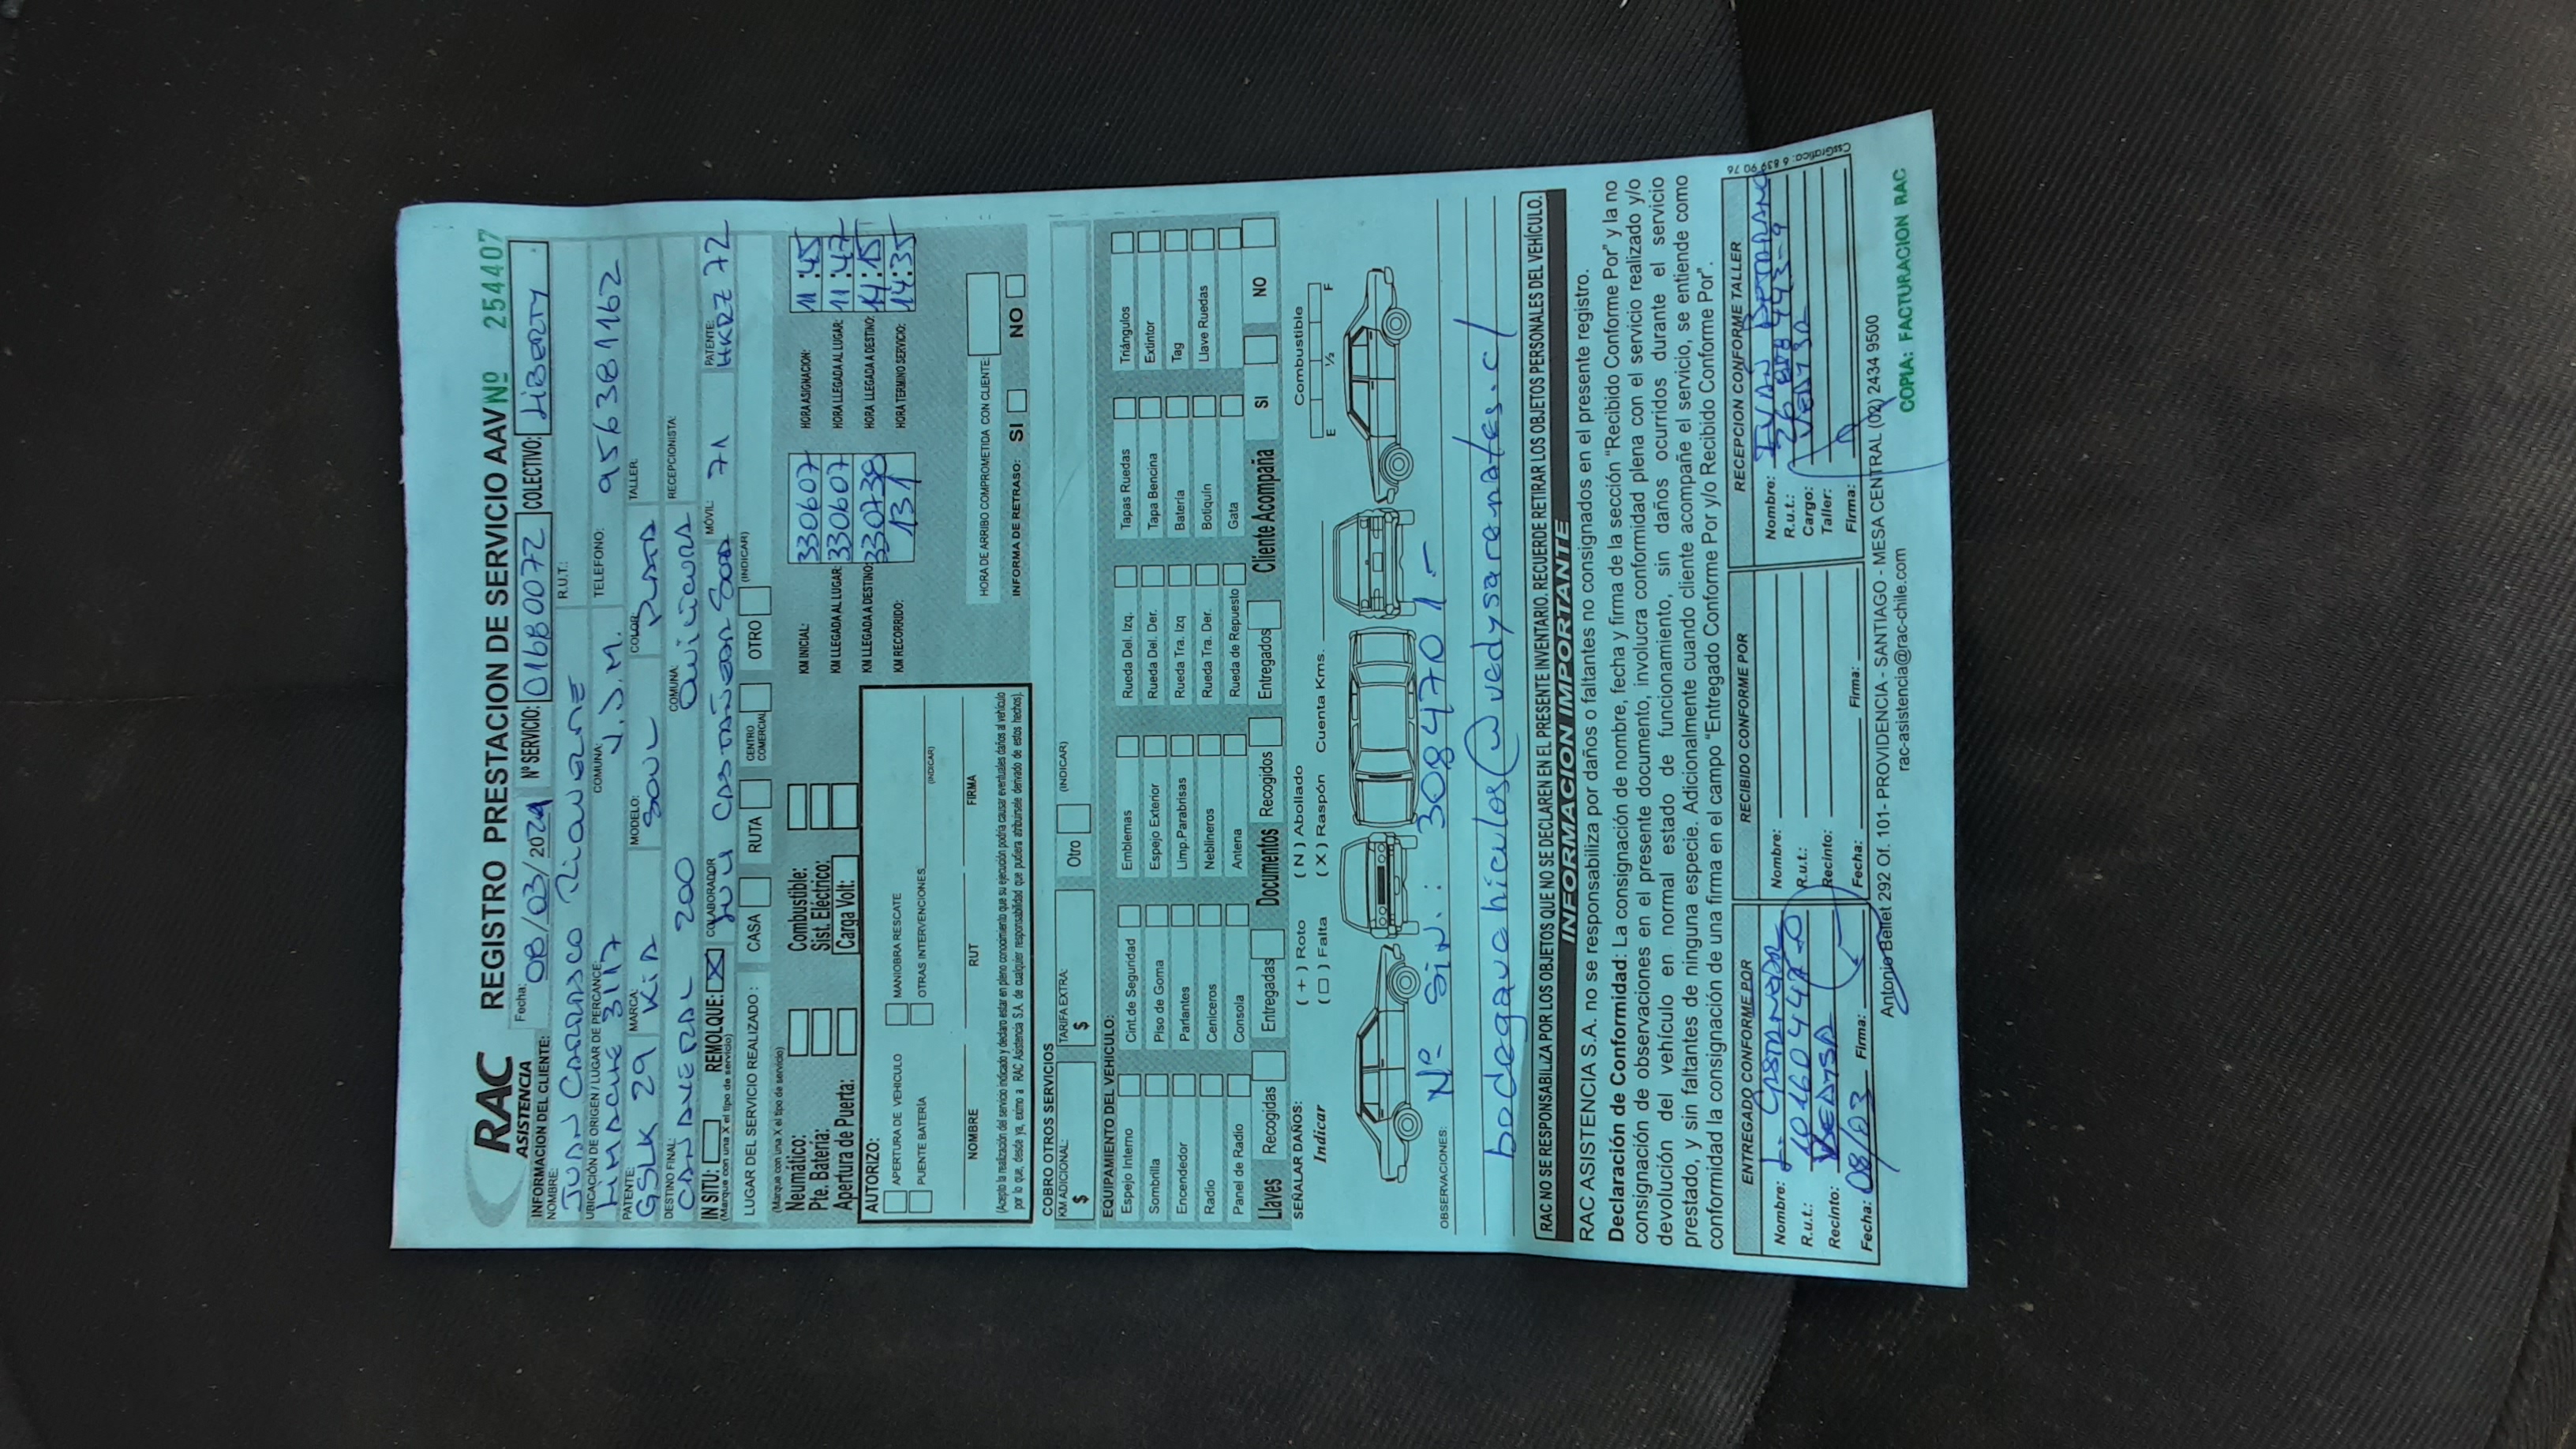 RAC
ASISTENCIA
REGISTRO PRESTACION DE SERVICIO AAV Nº 254407
Fecha: 08/03/2024 Nº SERVICIO: 016B0072 COLECTIVO: LIBERTY
INFORMACION DEL CLIENTE:
NOMBRE: JUAN CARRASCO R.U.T.:
UBICACIÓN DE ORIGEN / LUGAR DE PERCANCE: LIMACHE 3117 COMUNA: V.D.M. TELEFONO: 956381162
PATENTE: GSLK 29 MARCA: KIA MODELO: SOUL COLOR: PLATA TALLER:
DESTINO FINAL: CAÑAVERAL 200 COMUNA: QUILICURA RECEPCIONISTA:
IN SITU: REMOLQUE: X COLABORADOR MÓVIL: 71 PATENTE: HKRZ 72
(Marque con una X el tipo de servicio)
LUGAR DEL SERVICIO REALIZADO : CASA RUTA CENTRO COMERCIAL OTRO (INDICAR)
(Marque con una X el tipo de servicio)
Neumático: Combustible: KM INICIAL: 330607 HORA ASIGNACION: 11:45
Pte. Batería: Sist. Eléctrico: KM LLEGADA AL LUGAR: 330607 HORA LLEGADA AL LUGAR: 11:47
Apertura de Puerta: Carga Volt: KM LLEGADA A DESTINO: 330738 HORA LLEGADA A DESTINO: 14:15
KM RECORRIDO: 131 HORA TERMINO SERVICIO: 14:35
AUTORIZO:
APERTURA DE VEHICULO MANIOBRA RESCATE
PUENTE BATERÍA OTRAS INTERVENCIONES (INDICAR)
NOMBRE RUT FIRMA
(Acepto la realización del servicio indicado y declaro estar en pleno conocimiento que su ejecución podría causar eventuales daños al vehículo
por lo que, desde ya, eximo a RAC Asistencia S.A. de cualquier responsabilidad que pudiera atribuirsele derivado de estos hechos).
HORA DE ARRIBO COMPROMETIDA CON CLIENTE:
INFORMA DE RETRASO: SI NO
COBRO OTROS SERVICIOS
KM ADICIONAL: $ TARIFA EXTRA: $ Otro (INDICAR)
EQUIPAMIENTO DEL VEHICULO:
Espejo Interno Cint.de Seguridad Emblemas Rueda Del. Izq. Tapas Ruedas Triángulos
Sombrilla Piso de Goma Espejo Exterior Rueda Del. Der. Tapa Bencina Extintor
Encendedor Parlantes Limp.Parabrisas Rueda Tra. Izq Batería Tag
Radio Ceniceros Neblineros Rueda Tra. Der. Botiquín Llave Ruedas
Panel de Radio Consola Antena Rueda de Repuesto Gata
Llaves Recogidas Entregadas Documentos Recogidos Entregados Cliente Acompaña SI NO
SEÑALAR DAÑOS: ( + ) Roto ( N ) Abollado Combustible
Indicar ( □ ) Falta ( X ) Raspón Cuenta Kms. E ½ F
OBSERVACIONES: Nº SIN: 3084701.-
bodegavehiculos@vedysaremates.cl
RAC NO SE RESPONSABILIZA POR LOS OBJETOS QUE NO SE DECLAREN EN EL PRESENTE INVENTARIO. RECUERDE RETIRAR LOS OBJETOS PERSONALES DEL VEHÍCULO.
INFORMACION IMPORTANTE
RAC ASISTENCIA S.A. no se responsabiliza por daños o faltantes no consignados en el presente registro.
Declaración de Conformidad: La consignación de nombre, fecha y firma de la sección "Recibido Conforme Por" y la no
consignación de observaciones en el presente documento, involucra conformidad plena con el servicio realizado y/o
devolución del vehículo en normal estado de funcionamiento, sin daños ocurridos durante el servicio
prestado, y sin faltantes de ninguna especie. Adicionalmente cuando cliente acompañe el servicio, se entiende como
conformidad la consignación de una firma en el campo "Entregado Conforme Por y/o Recibido Conforme Por".
ENTREGADO CONFORME POR RECIBIDO CONFORME POR RECEPCION CONFORME TALLER
Nombre: Nombre: Nombre: IVAN
R.u.t.: R.u.t.: R.u.t.:
Recinto: VEDYSA Recinto: Cargo:
Taller: VEDYSA
Fecha: 08/03 Firma: Fecha: Firma: Firma:
Antonio Bellet 292 Of. 101- PROVIDENCIA - SANTIAGO - MESA CENTRAL (02) 2434 9500
rac-asistencia@rac-chile.com
COPIA: FACTURACION RAC
CssGrafica: 6 839 90 76